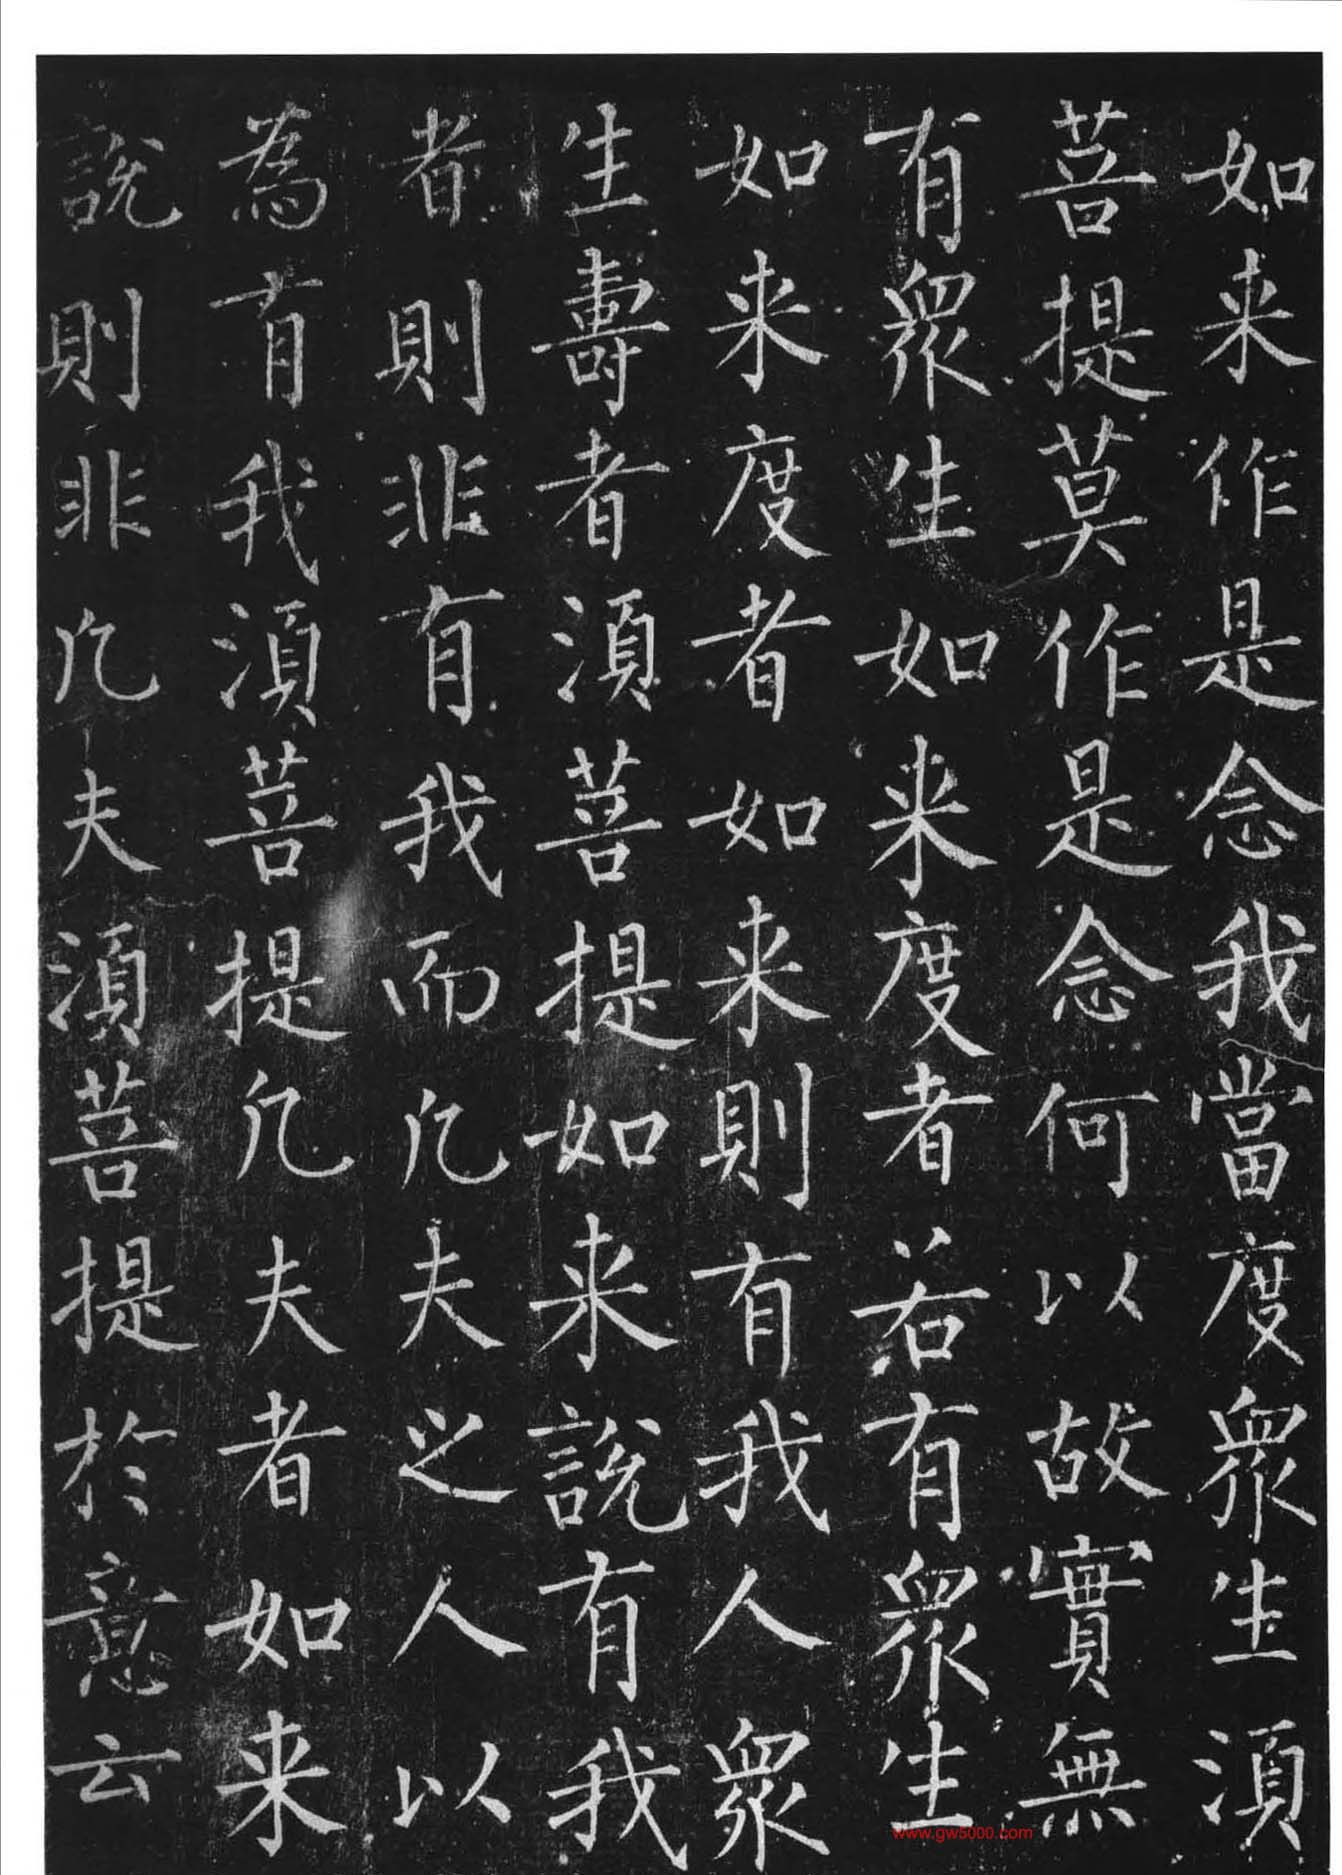 如来作是念我當度衆生湏
菩提莫作是念何以故實無
有衆生如来度者若有衆生
如来度者如来則有我人衆
生壽者湏菩提如来說有我
者則非有我而凡夫之人以
為有我湏菩提凡夫者如来
說則非凡夫湏菩提於意云
www.gw5000.com